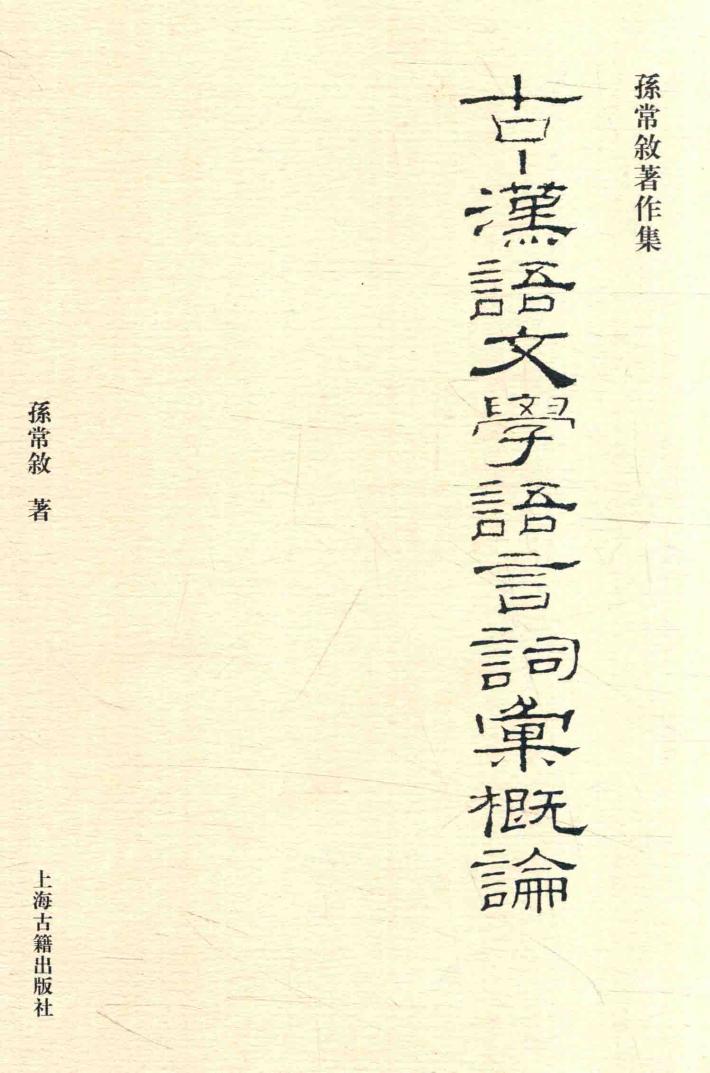 孫常敘著作集
古漢語文學語言詞彙概論
孫常敘 著
上海古籍出版社